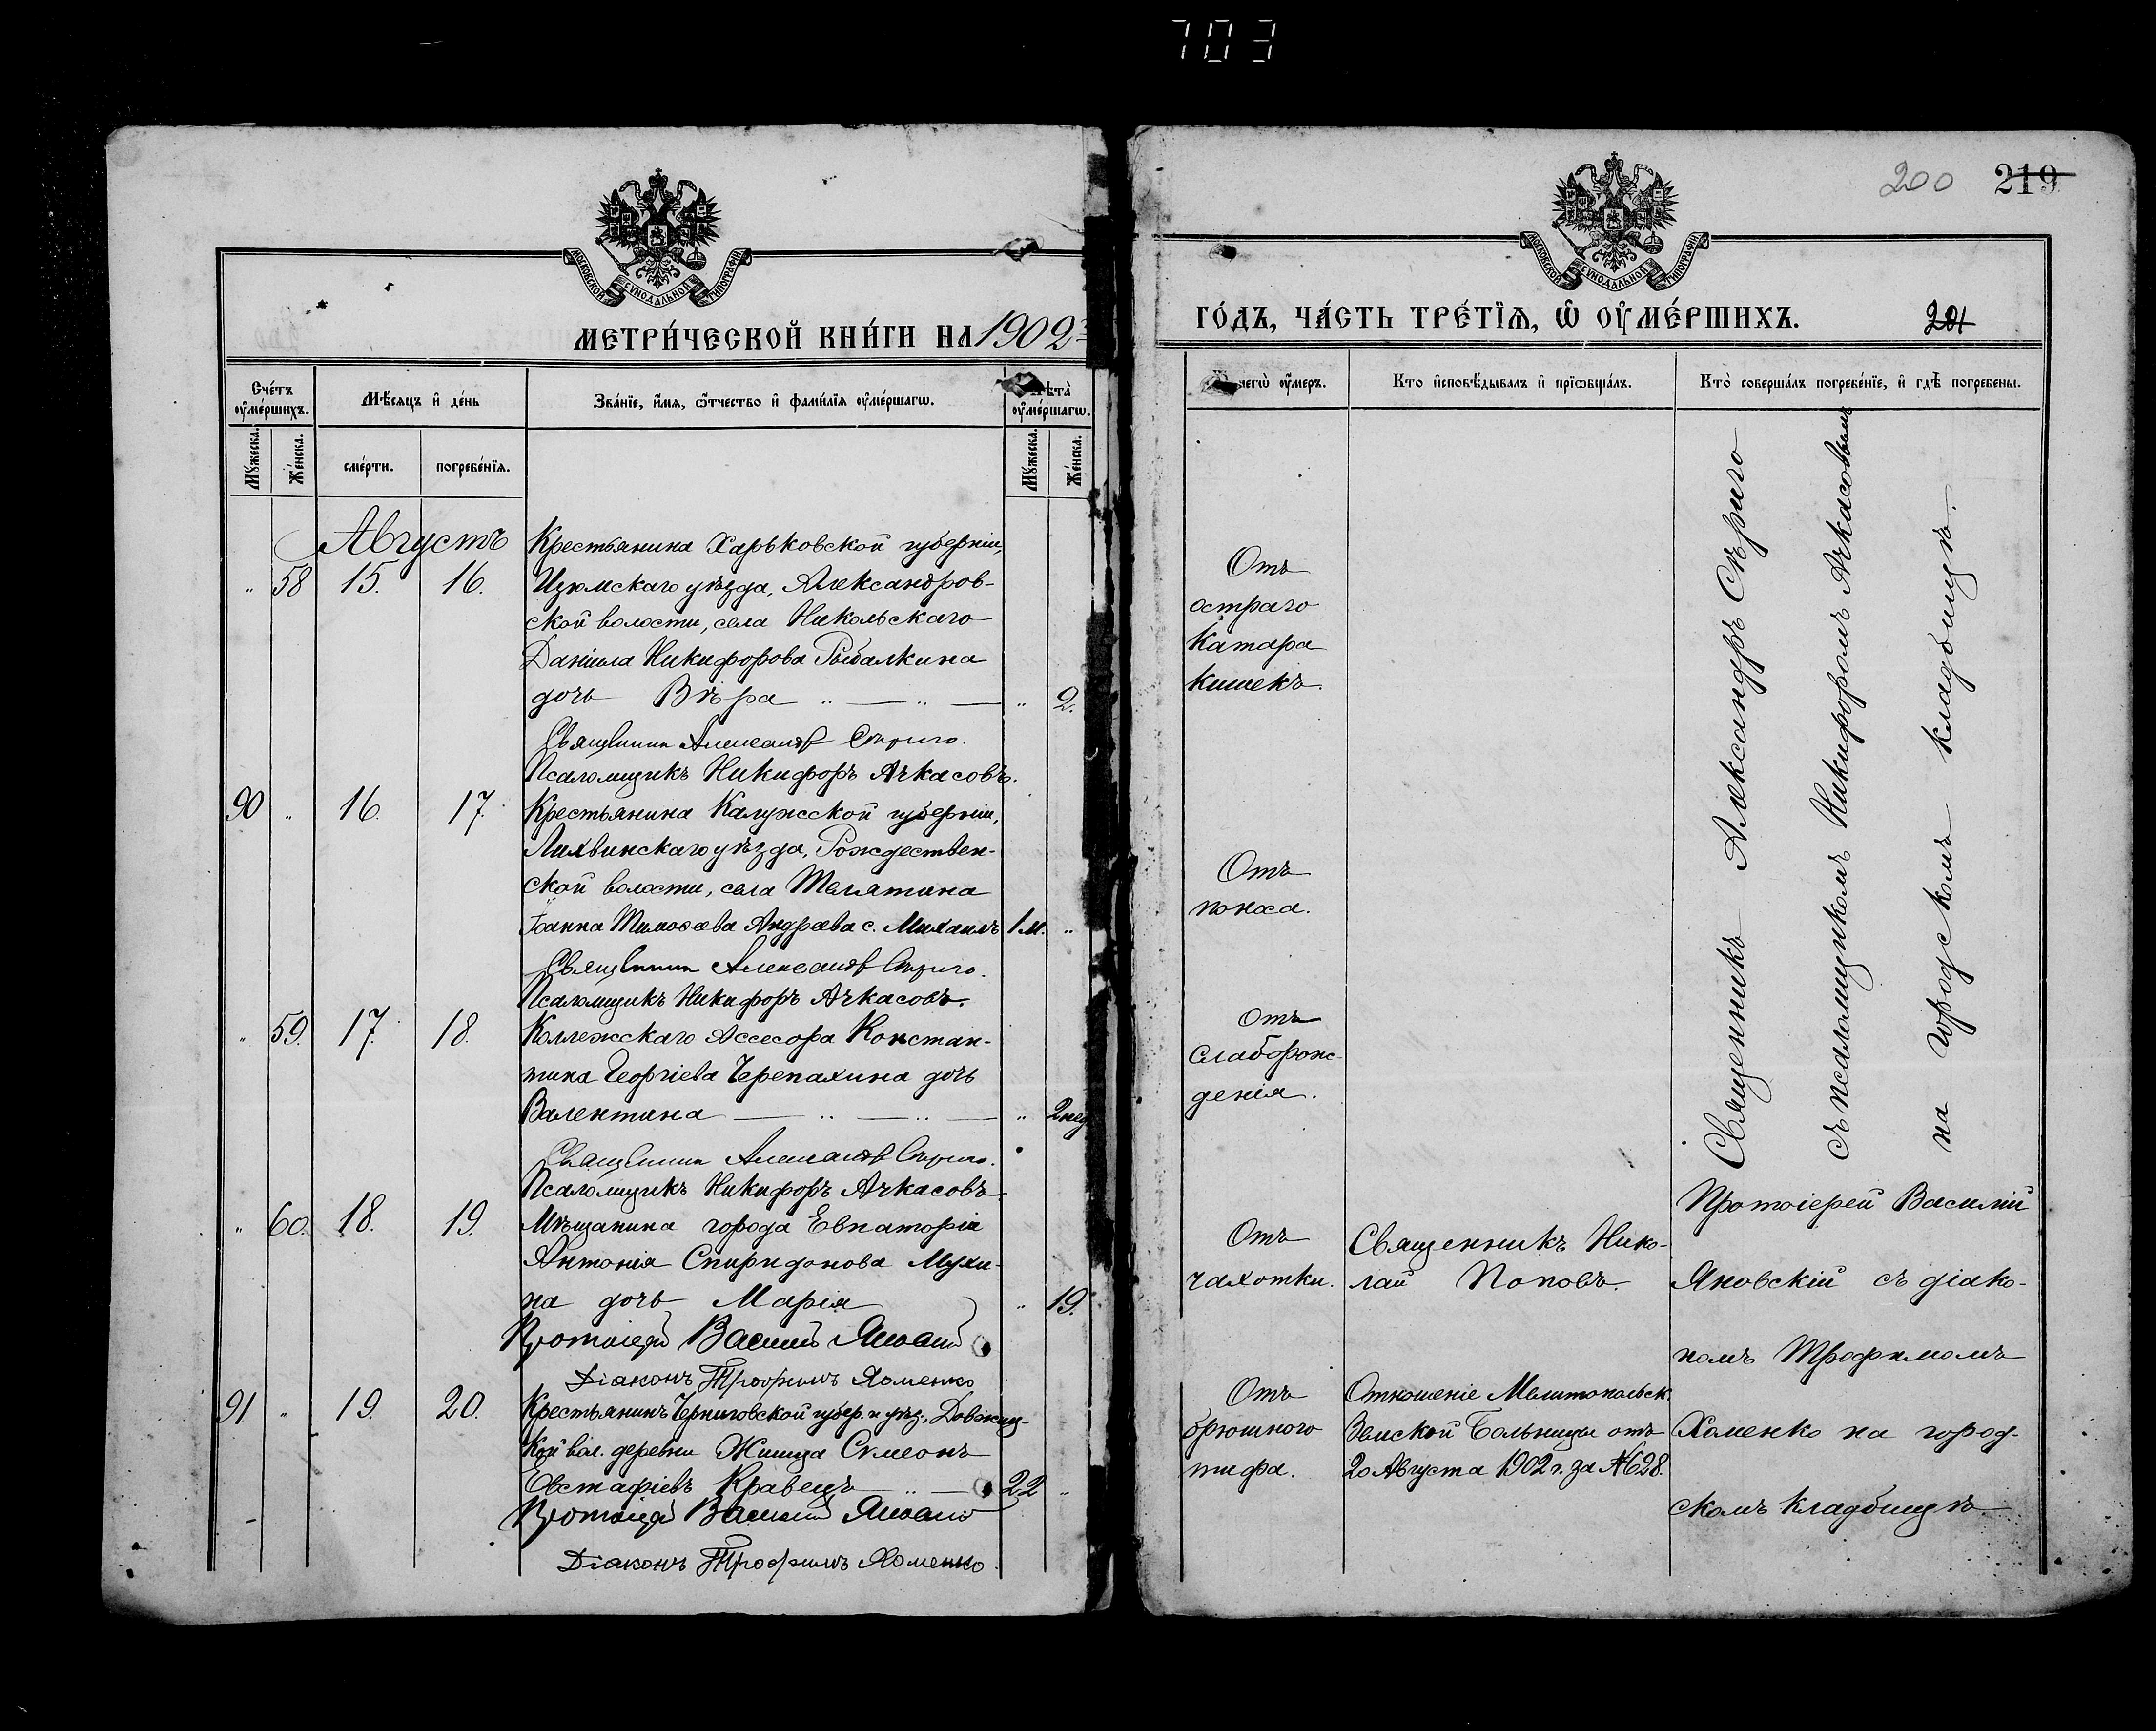 703
МОСКОВСКОЙ СѴНОДАЛЬНОЙ ТИПОГРАФІИ
МЕТРИ́ЧЕСКОЙ КНИ́ГИ НА 1902
Сче́тъ ᲂу҆ме́ршихъ.
Мѣ́сяцъ и҆ де́нь
Зва́нїе, и҆́мя, ѻ҆́тчество и҆ фами́лїя ᲂу҆ме́ршагѡ.
Лѣта̀ ᲂу҆ме́ршагѡ.
Мꙋ́жеска.
Же́нска.
сме́рти.
погребе́нїя.
Мꙋ́жеска.
Же́нска.
Августъ
Крестьянина Харьковской губерніи,
" 58 15. 16. Изюмскаго уѣзда, Александров-
ской волости, села Никольскаго
Даніила Никифорова Рыбалкина
дочь Вѣра " — " — " 2.
Священникъ Александръ Сѣриго.
Псаломщикъ Никифоръ Ачкасовъ.
90 " 16. 17. Крестьянина Калужской губерніи,
Лихвинскаго уѣзда, Рождествен-
ской волости, села Телятина
Іоанна Тимоѳеева Андреева с. Михаилъ 1 м. "
Священникъ Александръ Сѣриго.
Псаломщикъ Никифоръ Ачкасовъ.
" 59. 17. 18. Коллежскаго Ассесора Констан-
тина Георгіева Черепахина дочь
Валентина — " — " — " 2 нед
Священникъ Александръ Сѣриго.
Псаломщикъ Никифоръ Ачкасовъ
" 60. 18. 19. Мѣщанина города Евпаторіи
Антонія Спиридонова Мухи-
на дочь Марія " 19.
Протоіерей Василій Яновскій
Діаконъ Трофимъ Хоменко
91 " 19. 20. Крестьянинъ Черниговской губер. и уѣз.
кой вол. деревни Симеонъ
Евстафіевъ Кравецъ — " — 22 "
Протоіерей Василій Яновскій
Діаконъ Трофимъ Хоменко.
200 219
МОСКОВСКОЙ СѴНОДАЛЬНОЙ ТИПОГРАФІИ
ГО́ДЪ, ЧА́СТЬ ТРЕ́ТЇѦ, Ѡ҆ ОУ҆МЕ́РШИХЪ.
201
чегѡ̀ ᲂу҆́меръ.
Кто̀ и҆сповѣ́дывалъ и҆ прїѡбща́лъ.
Кто̀ соверша́лъ погребе́нїе, и҆ гдѣ̀ погребены.
Отъ
остраго
катара
кишекъ.
Отъ
поноса.
Отъ
слаборож-
денія.
Священникъ Александръ Сѣриго
съ псаломщикомъ Никифоромъ Ачкасовымъ
на городскомъ кладбищѣ.
Отъ
чахотки.
Священникъ Нико-
лай Поповъ.
Протоіерей Василій
Яновскій съ діако-
номъ Трофимомъ
Хоменко на город-
скомъ кладбищѣ
Отъ
брюшного
тифа.
Отношеніе Мелитопольск.
Земской Больницы отъ
20 Августа 1902 г. за № 628.